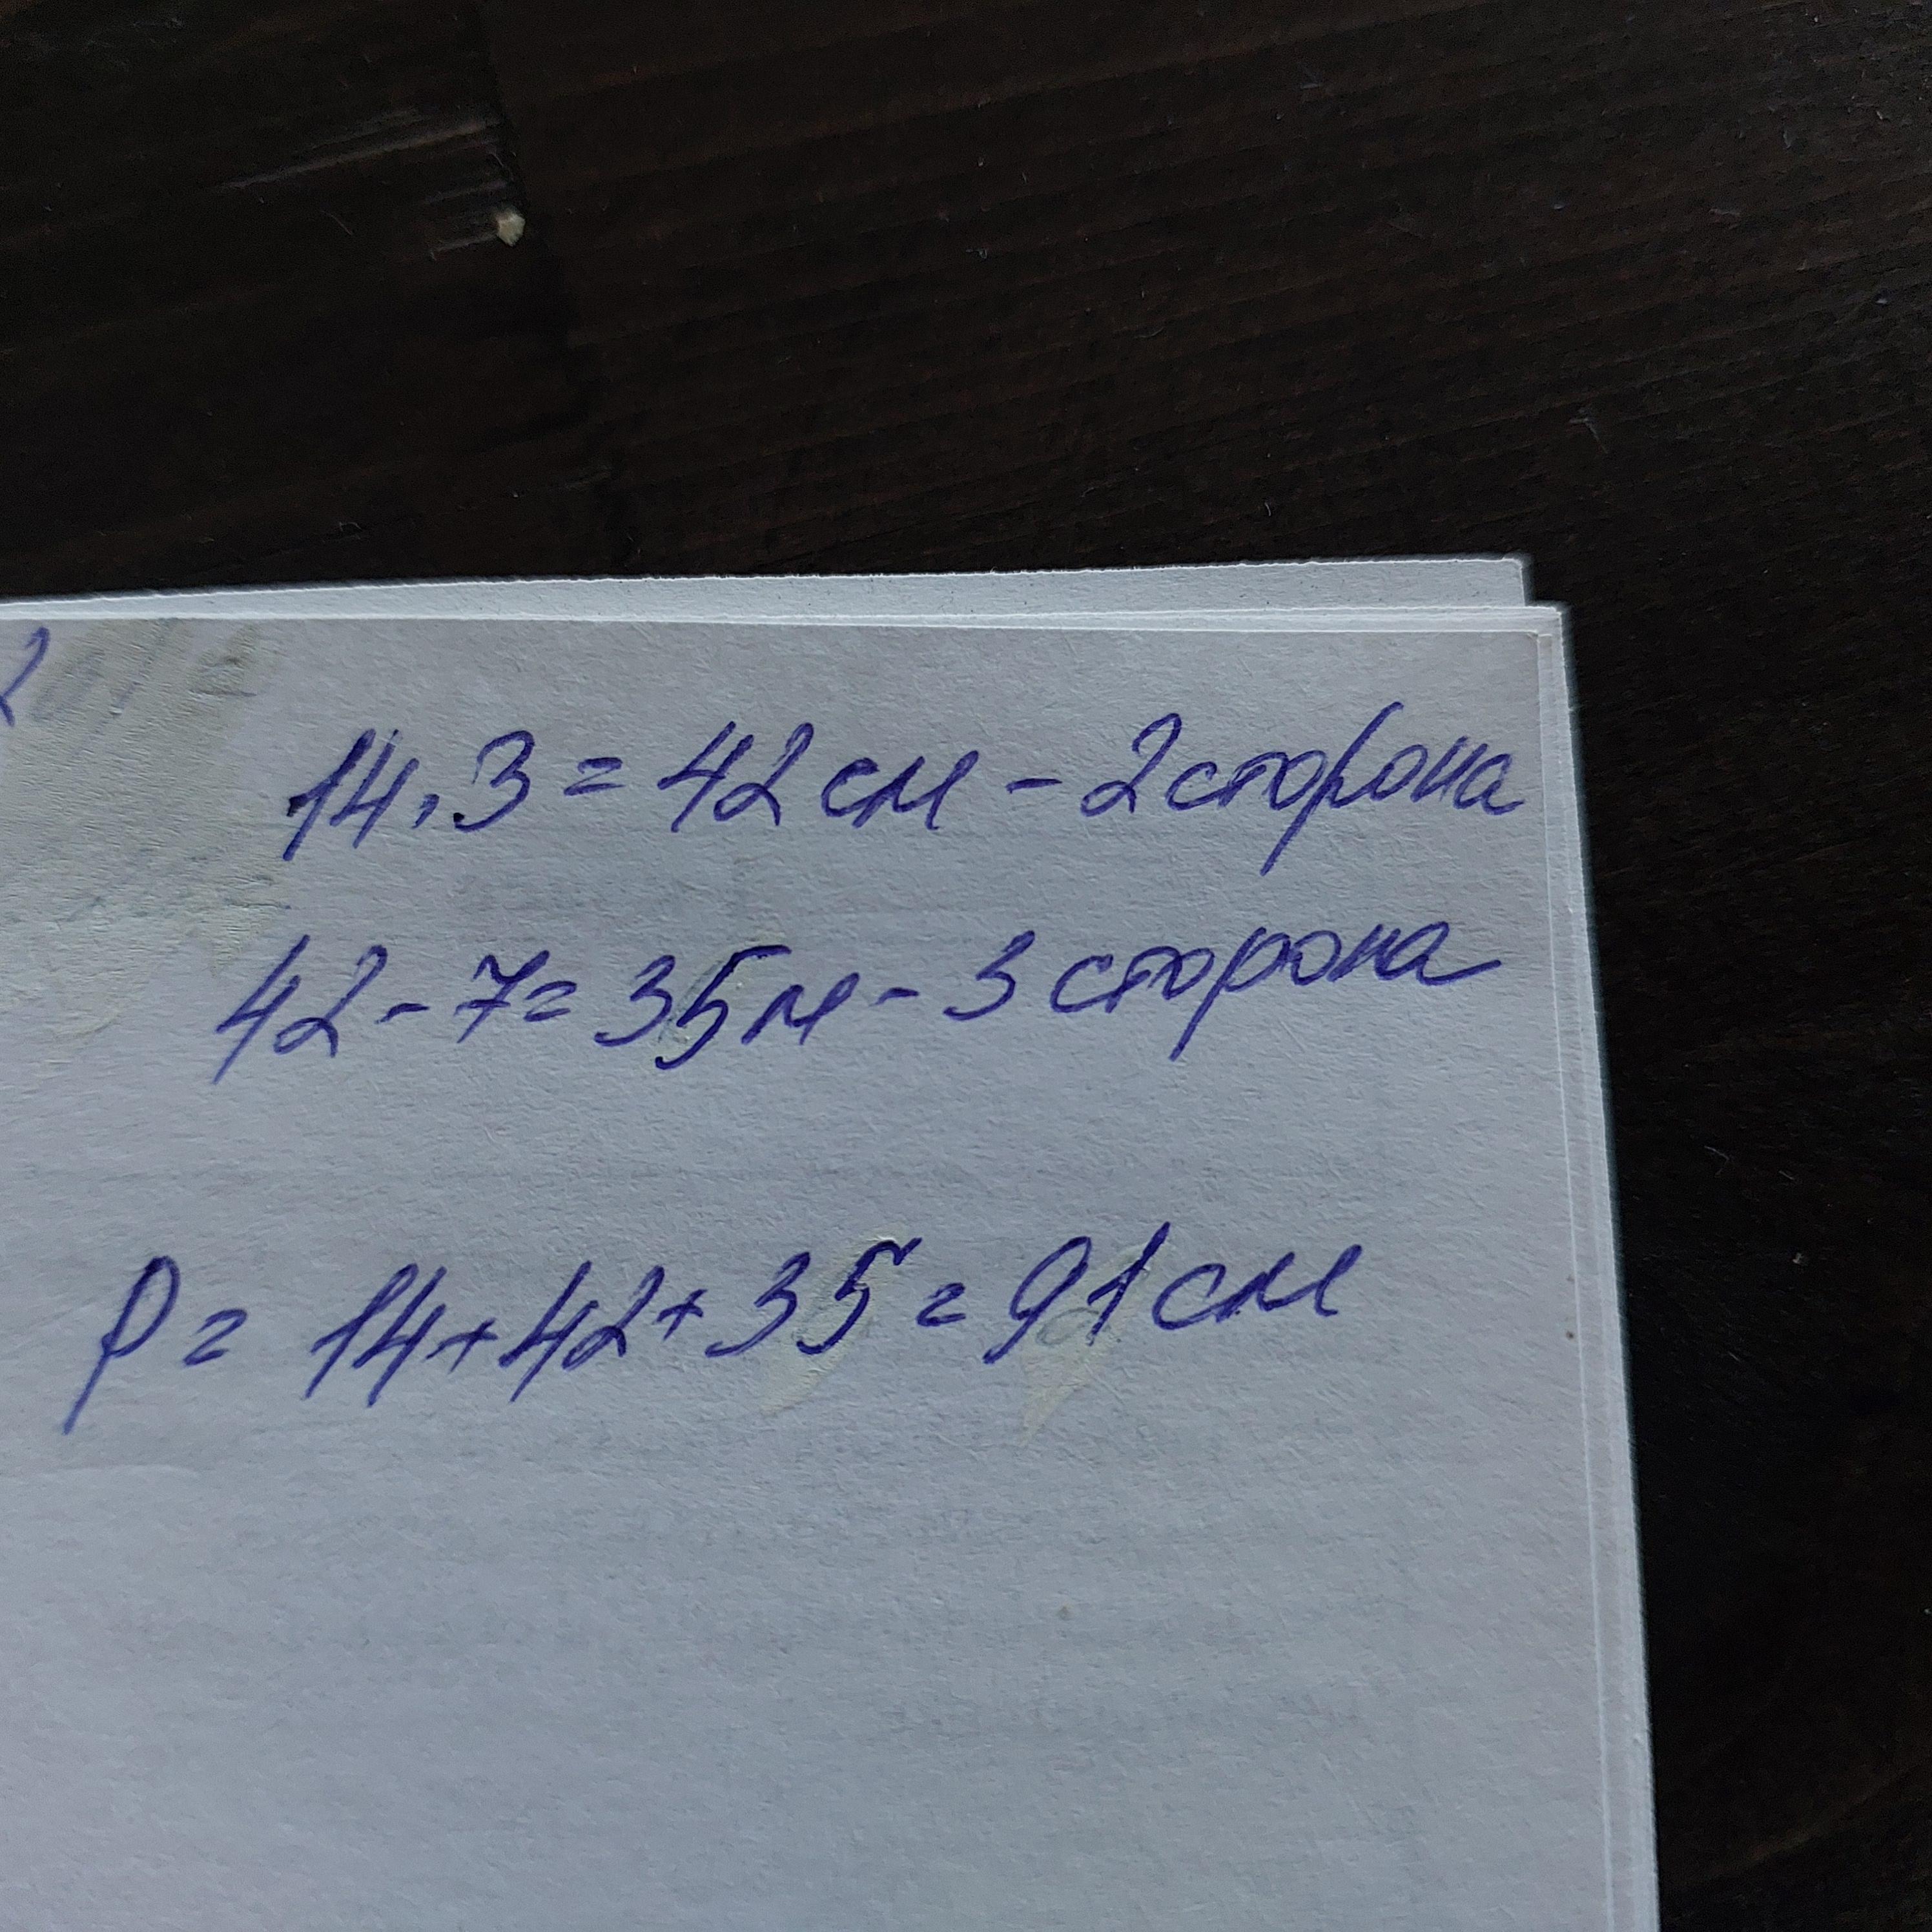 14.3 = 42 см - 2 сторона
42 - 7 = 35м - 3 сторона
P = 14 + 42 + 35 = 91 см